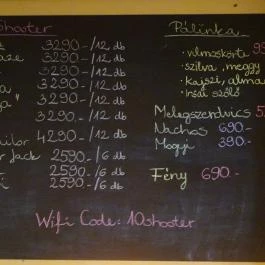 Shooter
3290.-/12 db
3290.-/12 db
3290.-/12 db
3290.-/12 db
3290.-/12 db
3290.-/12 db
4290.-/12 db
Jack 2590.-/6 db
2590.-/6 db
2590.-/6 db
Pálinka
• vilmoskörte
• szilva, meggy
• kajszi, alma
• Irsai szőlő
Melegszendvics
Nachos 690.-
Mogyi 390.-
Fény 690.-
Wifi Code: 10shooter